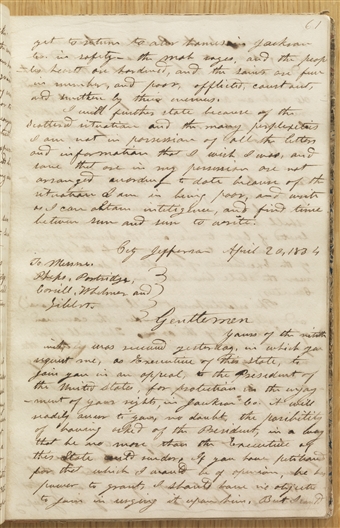 61
get to return to our homes in Jackson
Co in safety the mob rages, and the peop
les hearts are hardened, and the saints are few
in number, and poor, afflicted, constant
and smitten by their enemies.
I will further state because of the
scattered situation and the many perplexities
I am not in possession of all the letters
and information that I wish I was, and
some that are in my possession are not
arranged according to date because of the
situation I am in being poor, and write
as I can obtain inteligence, and find time
between sun and sun to write.
City Jefferson April 20, 1834
To Messrs.
Phelps, Partridge,
Corrill, Whitmer and
Gilbert.
Gentlemen
yours of the ninth
inst, was received yesterday, in which you
request me, as Executive of this State, to
join you in an appeal, to the President of
the United States, for protection in the enjoy
ment of your rights in Jackson Co. it will
readily occur to you, no doubt, the possibility
of having asked of the President, in a way
that he no more than the Executive of
this State could render, if you have petitioned
for that which I would be of opinion, he has
power to grant, I should have no objection
to join in urging it upon him, But I can't